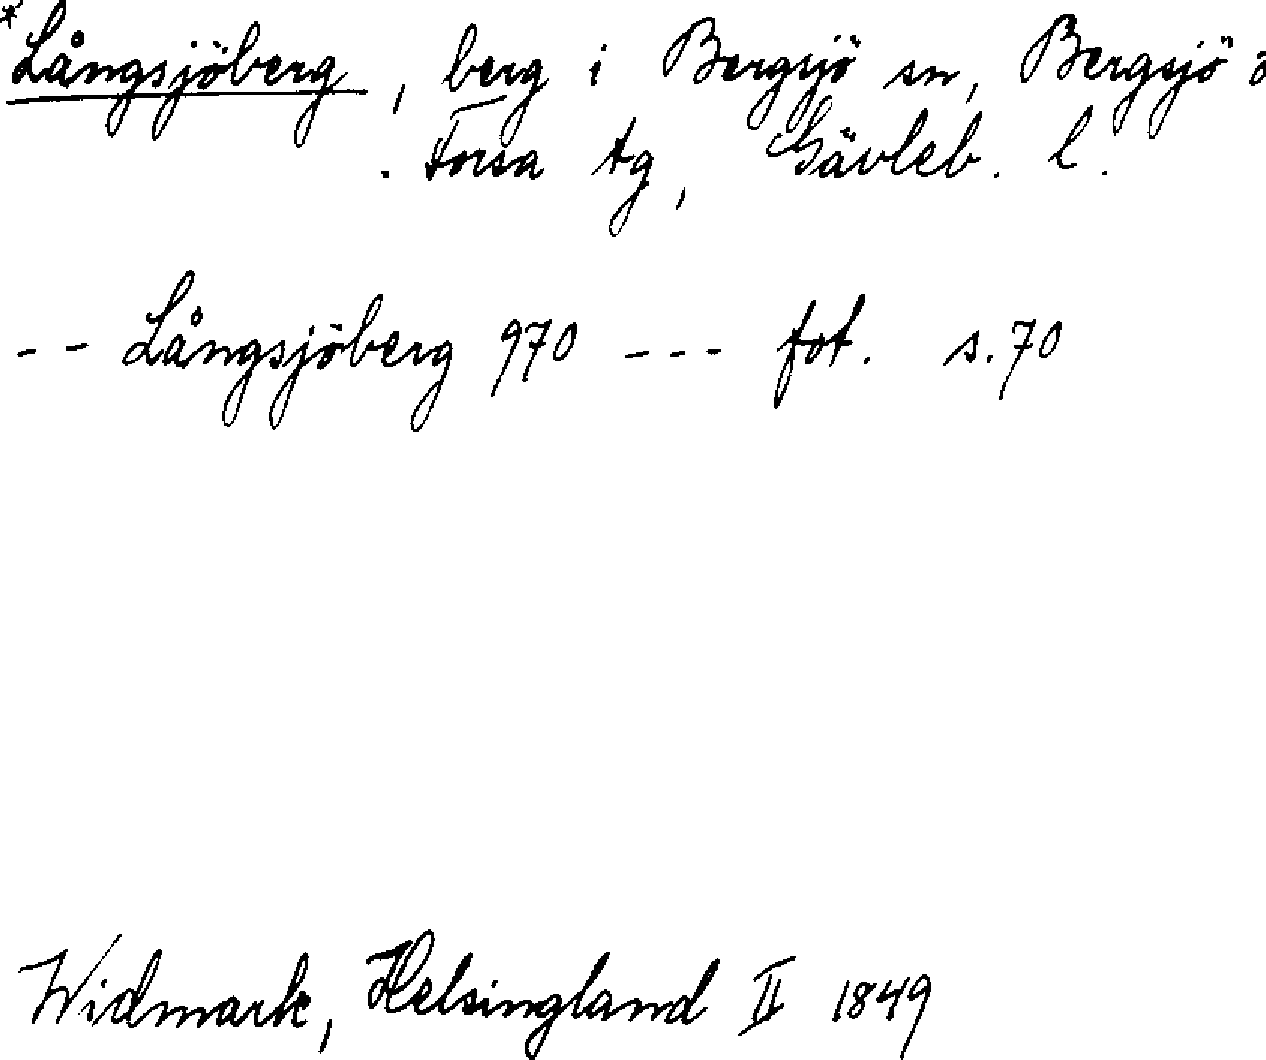 *Långsjöberg, berg i Bergsjö sn, Bergsjö o
. Forsa tg, Gävleb. l.
-- Långsjöberg 970 --- fot. s. 70
Widmark, Helsingland II 1849